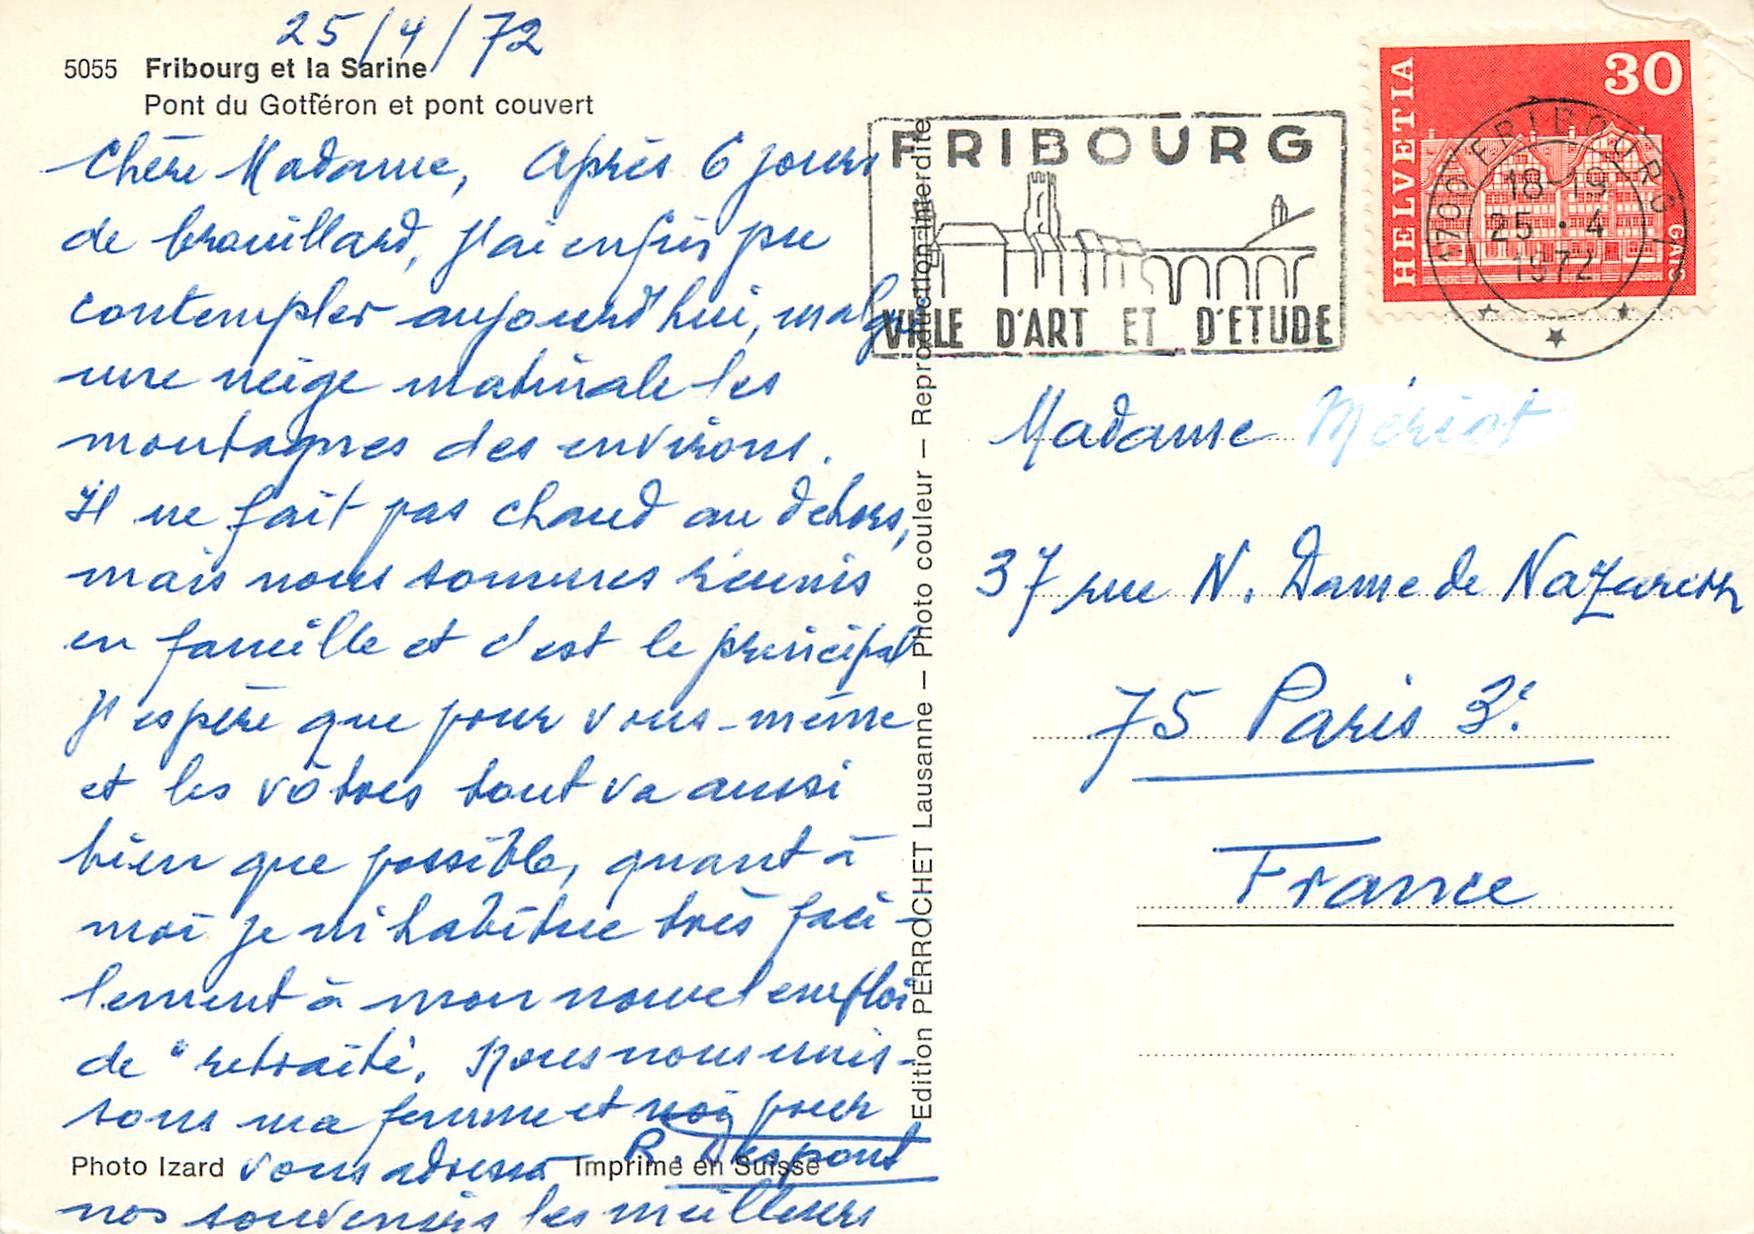 25/4/72
5055 Fribourg et la Sarine
Pont du Gottéron et pont couvert
Chère Madame, Après 6 jours
de brouillard, j'ai enfin pu
contempler aujourd'hui, malgré
une neige matinale les
montagnes des environs.
Il ne fait pas chaud au dehors,
mais nous sommes réunis
en famille et c'est le principal
J'espère que pour vous-même
et les vôtres tout va aussi
bien que possible, quant à
moi je m'habitue très faci-
lement à mon nouvel emploi
de "retraité. Nous nous unis-
sons ma femme et moi pour
vous adresser
nos souvenirs les meilleurs
R. Despont
Photo Izard Imprimé en Suisse
Edition PERROCHET Lausanne — Photo couleur — Reproduction interdite
FRIBOURG
VILLE D'ART ET D'ETUDE
HELVETIA
30
GAIS
1700 FRIBOURG 1
18-19
25.4
1972
Madame Mériot
37 rue N. Dame de Nazareth
75 Paris 3e.
France